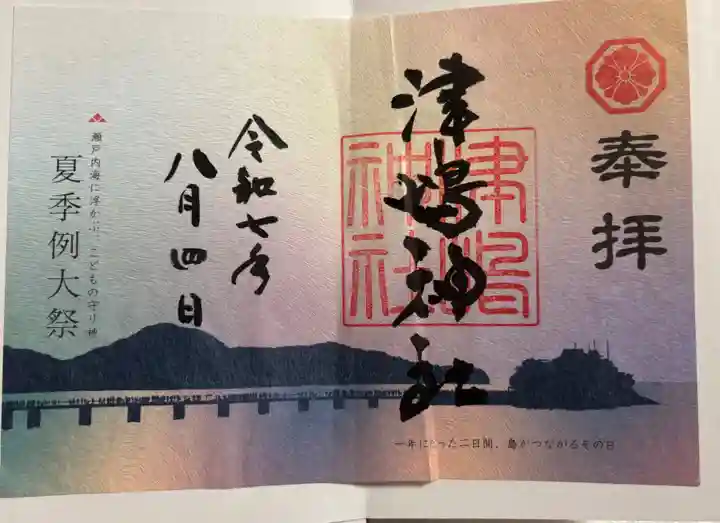 奉拝
津嶋神社
津嶋
神社
令和七年
八月四日
瀬戸内海に浮かぶ、こどもの守り神
夏季例大祭
一年にたった二日間、島がつながるその日